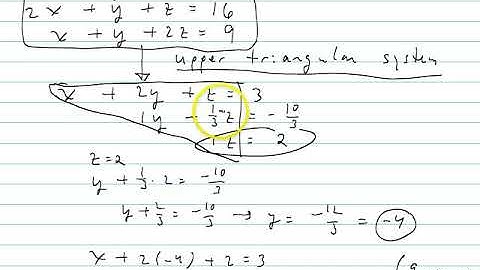 2x + y + z = 16
x + y + 2z = 9
upper triangular system
x + 2y + z = 3
1y - 1/3 z = - 10/3
1z = 2
z = 2
y + 1/3 · 2 = -10/3
y + 2/3 = -10/3 → y = -12/3 = -4
x + 2(-4) + 2 = 3